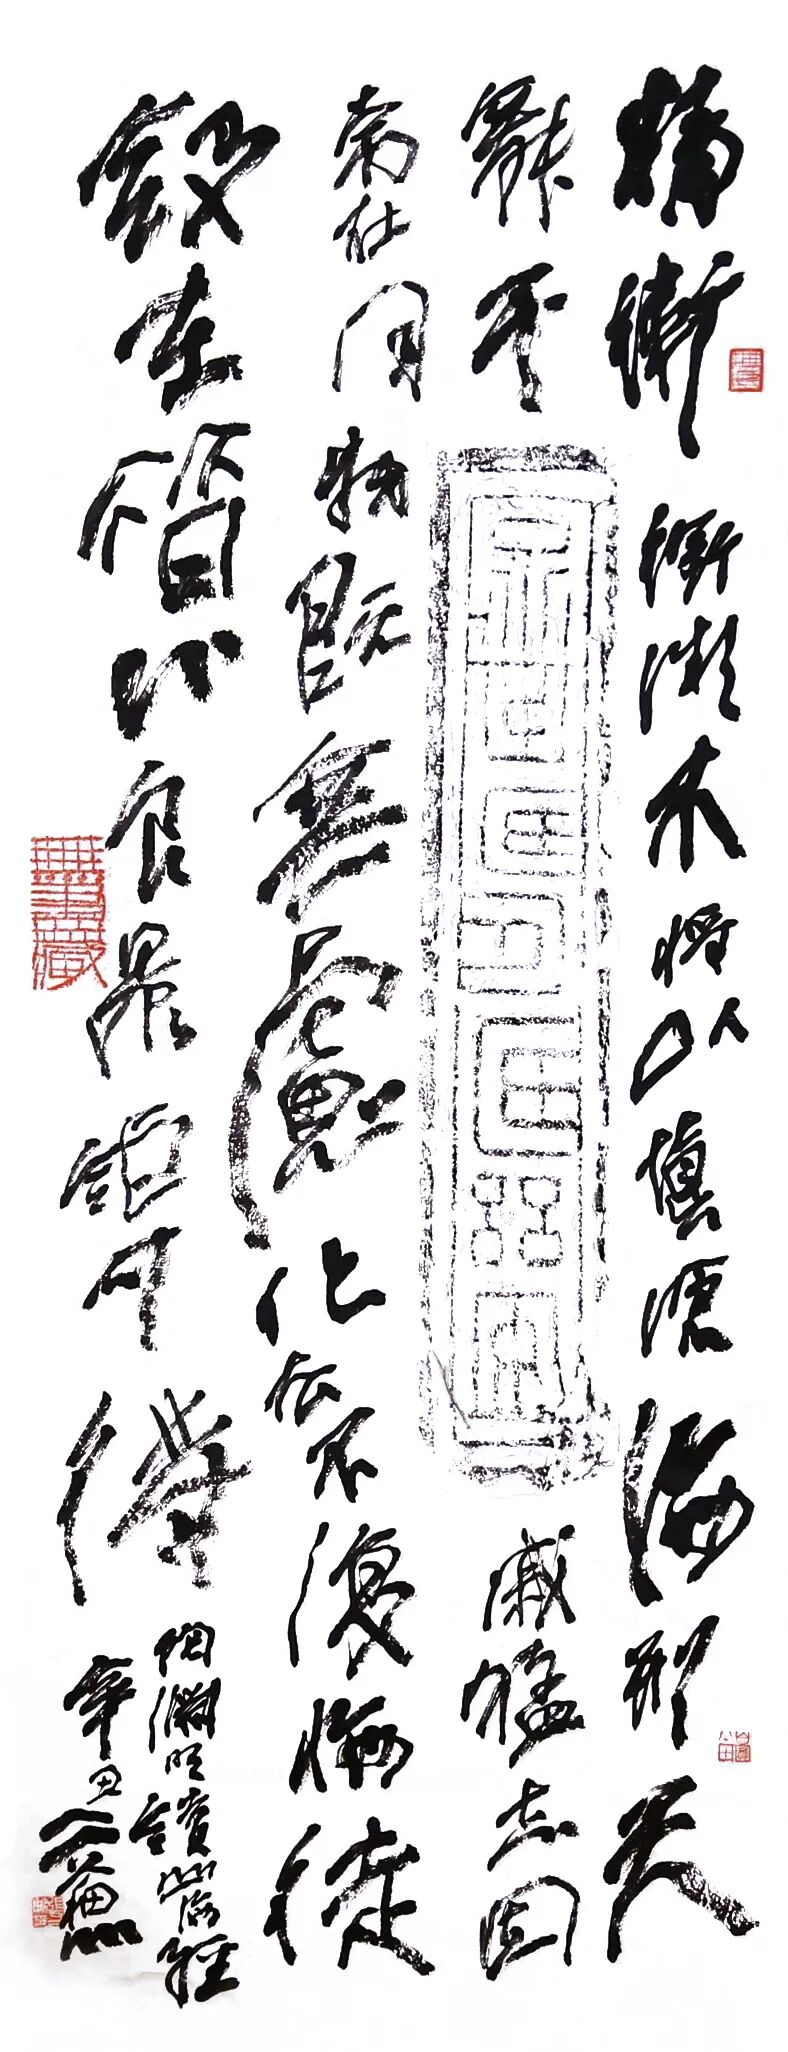 精衛銜微木將以填滄海形天
舞干戚猛志固
常在同物既無慮化去不復悔徒
設在昔心良晨詎可待
陶淵明讀山海經
辛丑